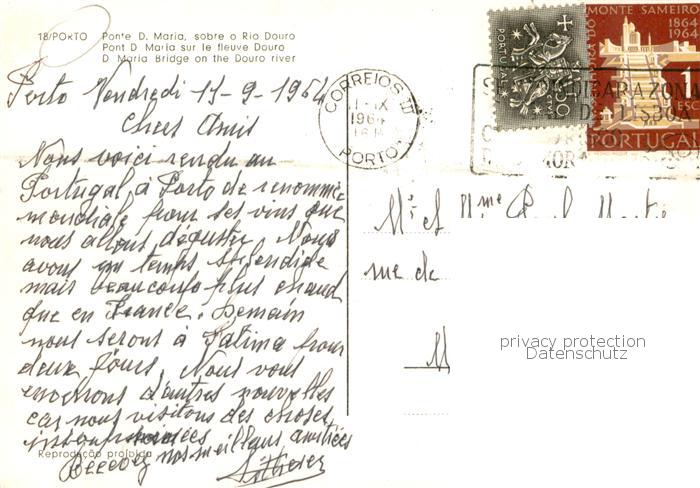 18/PORTO Ponte D. Maria, sobre o Rio Douro
Pont D Maria sur le fleuve Douro
D. Maria Bridge on the Douro river
Porto Vendredi 11-9-1964
Chers Amis
Nous voici rendu au
Portugal, à Porto de renommée
mondiale pour ses vins que
nous allons déguster. Nous
avons un temps splendide
mais beaucoup plus chaud
que en France. Demain
nous seront à Fatima pour
deux jours. Nous vous
enverrons d'autres nouvelles
car nous visitons des choses
Recevez nos meilleurs amitiés
Reprodução proibida
CORREIOS
1964
PORTO
PORTUGAL
MONTE SAMEIRO
1864
1964
1 ESC
PORTUGAL
LISBOA
Mr et Mme
rue de
M
privacy protection
Datenschutz